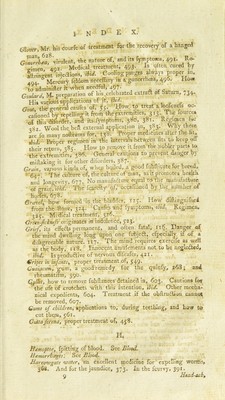 I N D E X.
Glover, Mr. his course of treatment for the recovery of a hanged
man, 628.
Gonorrhœa, virulent, the nature of, and its symptoms, 491. Re-
gimen, 492. Medical treatment, 493. Is often cured by
astringent injections, ibid. Cooling purges always proper in,
494. Mercury seldom necessary in a gonorrhœa, 496. How
to administer it when needful, 497.
Goulard, M. preparation of his celebrated extract of Saturn, 734.
His various applications of it, ibid.
Gout, the general causes of, 51. How to treat a looseness oc-
casioned by repelling it from the extremities, 313. The sources
of this disorder, and its symptoms, 380, 381. Regimen for
382. Wool the best external application in, 383. Why there
are so many nostrums for, 383. Proper medicines after the fit,
ibid. Proper regimen in the intervals between fits to keep off
their return, 385. How to remove it from the nobler parts to
the extremities, 386. General cautions to prevent danger by
mistaking it for other disorders, 387.
Grain, various kinds of, a good substitute for bread,
647. The culture of, the interest of man, as it promotes health
and longevity, 677. No monarchies equal to the
of grain, ibid. The scarcity of, occasioned by the number of
horses, 678.
Gravel, how formed in the bladder, 125. How distinguished
from the stone, 324. Causes and symptoms, ibid. Regimen,
325. Medical treatment, 326.
Green sickness originates in indolence, 523.
Grief, its effects permanent, and often fatal, 118. Danger of
the mind dwelling long upon one subject, especially if of a
disagreeable nature, 117. The mind requires exercise as well
as the body, 118. Innocent amusements not to be neglected,
ibid. Is productive of nervous diseases, 421.
Gripes in infants, proper treatment of, 549.
Guaiacum, gum, a good remedy for the quinsy, 268; and
rheumatism, 390.
Gullet, how to remove substances detained in, 603. Cautions for
the use of crotchets with this intention, ibid. Other mecha-
nical expedients, 604. Treatment if the obstruction cannot
be removed, 607.
Gums of children, applications to, during teething, and how to
cut them, 561.
Gutta serena, proper treatment of, 458.
H.
Hæmoptoe, spitting of blood. See Blood.
Hæmorrhages. See Blood.
Harrowgate water, an excellent medicine for expelling worms,
368. And for the jaundice, 373. In the scurvy, 392.
9 Head-ach,